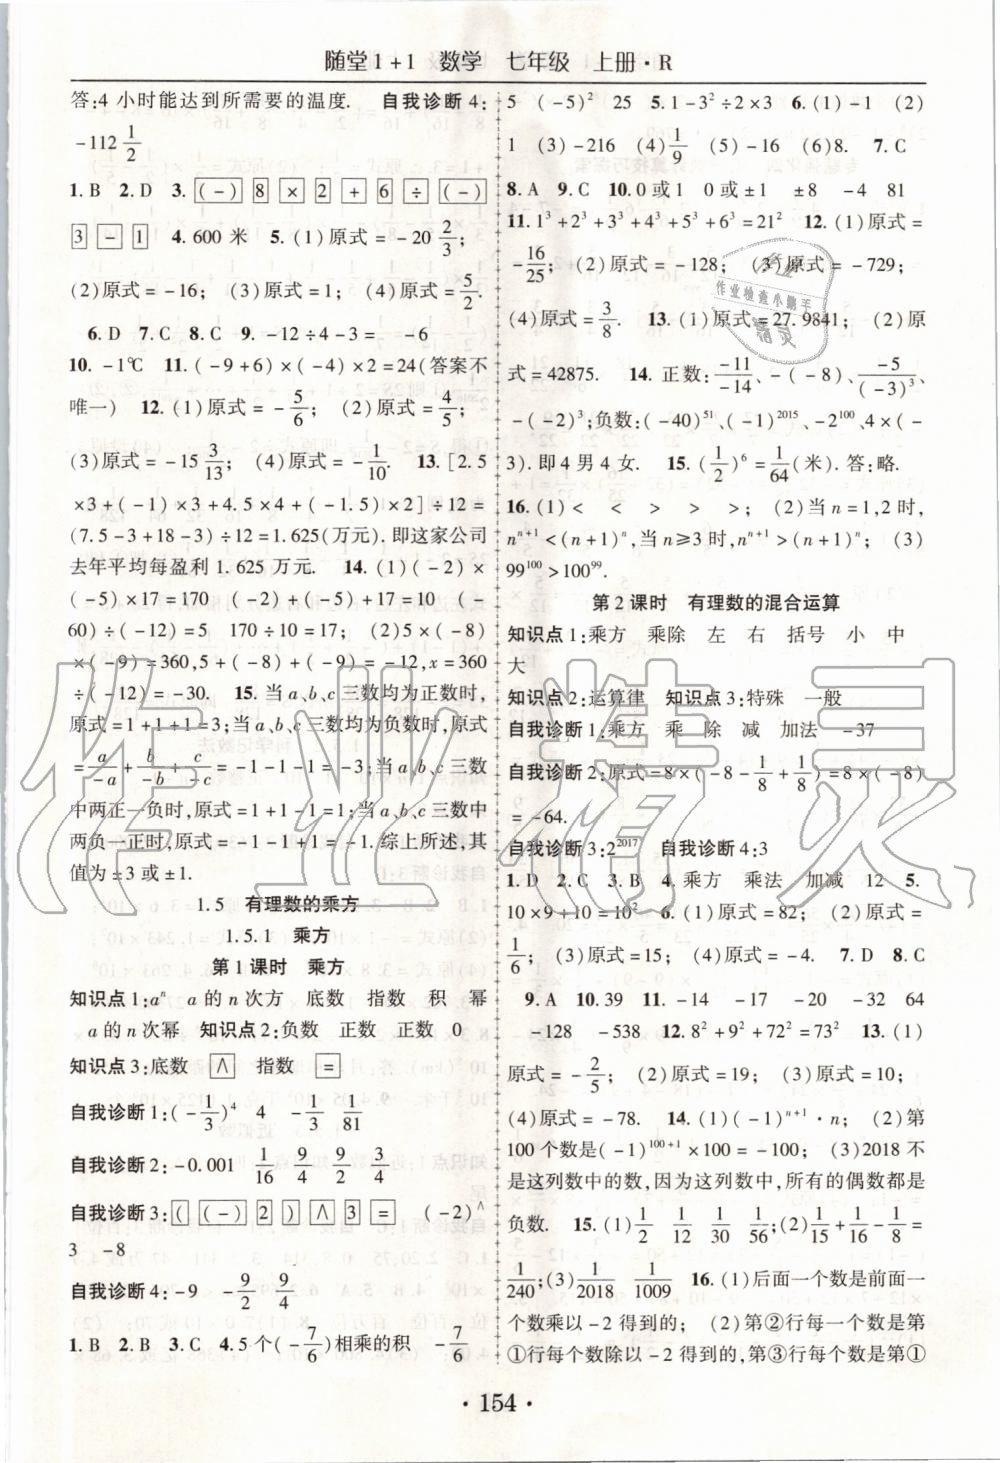 随堂1+1 数学 七年级 上册·R
答:4 小时能达到所需要的温度. 自我诊断 4:
-112 1/2
1. B 2. D 3. (-) 8 × 2 + 6 ÷ (-)
3 - 1 4. 600 米 5. (1)原式 = -20 2/3;
(2)原式 = -16; (3)原式 = 1; (4)原式 = 5/2.
6. D 7. C 8. C 9. -12÷4-3= -6
10. -1℃ 11. (-9+6)×(-4)×2=24(答案不
唯一) 12. (1)原式 = -5/6; (2)原式 = 4/5;
(3)原式 = -15 3/13; (4)原式 = -1/10. 13. [2.5
×3+(-1)×3+4.5×4+(-1.5)×2]÷12=
(7.5-3+18-3)÷12=1.625(万元). 即这家公司
去年平均每盈利 1.625 万元. 14. (1)(-2)×
(-5)×17=170 (-2)+(-5)+17=10 (-
60)÷(-12)=5 170÷10=17 (2)5×(-8)
×(-9)=360,5+(-8)+(-9)=-12,x=360
÷(-12)=-30. 15. 当 a、b、c 三数均为正数时,
原式=1+1+1=3;当 a、b、c 三数均为负数时,原式
=a/-a+b/-b+c/-c=-1-1-1=-3;当 a、b、c 三数
中两正一负时,原式=1+1-1=1;当 a、b、c 三数中
两负一正时,原式=1-1-1=-1.综上所述,其
值为±3 或±1.
1.5 有理数的乘方
1.5.1 乘方
第 1 课时 乘方
知识点 1:aⁿ a 的 n 次方 底数 指数 积 幂
a 的 n 次幂 知识点 2:负数 正数 正数 0
知识点 3:底数 ∧ 指数 =
自我诊断 1:(-1/3)⁴ 4 -1/3 1/81
自我诊断 2:-0.001 1/16 9/4 9/2 3/4
自我诊断 3:( (-) 2 ) ∧ 3 = (-2)^
3 -8
自我诊断 4:-9 -9/2 9/4
1. B 2. B 3. C 4. 5 个(-7/6)相乘的积 -7/6
5 (-5)² 25 5. 1-3²÷2×3 6. (1)-1 (2)
1 (3)-216 (4)1/9 (5)-16 (6)8. 7. C
8. A 9. C 10. 0 或 1 0 或±1 ±8 -4 81
11. 1³+2³+3³+4³+5³+6³=21² 12. (1)原式=
-16/25; (2)原式=-128; (3)原式=-729;
(4)原式=3/8. 13. (1)原式=27.9841; (2)原
式=42875. 14. 正数:-11/-14、-(-8)、-5/(-3)³、
-(-2)³;负数:(-40)⁵¹、(-1)²⁰¹⁵、-2¹⁰⁰、4×(-
3).即 4 男 4 女. 15. (1/2)⁶=1/64(米).答:略.
16. (1)< < > > > (2)当 n=1,2 时,
nⁿ⁺¹<(n+1)ⁿ,当 n≥3 时,nⁿ⁺¹>(n+1)ⁿ; (3)
99¹⁰⁰>100⁹⁹.
第 2 课时 有理数的混合运算
知识点 1:乘方 乘除 左 右 括号 小 中
大
知识点 2:运算律 知识点 3:特殊 一般
自我诊断 1:乘方 乘 除 减 加法 -37
自我诊断 2:原式=8×(-8-1/8+1/8)=8×(-8)
=-64.
自我诊断 3:2²⁰¹⁷ 自我诊断 4:3
1. D 2. C 3. B 4. 乘方 乘法 加减 12 5.
10×9+10=10² 6. (1)原式=82; (2)原式=
1/6; (3)原式=15; (4)原式=-4. 7. D 8. C
9. A 10. 39 11. -14 -17 -20 -32 64
-128 -538 12. 8²+9²+72²=73² 13. (1)
原式=-2/5; (2)原式=19; (3)原式=24;
(4)原式=-78. 14. (1)(-1)ⁿ⁺¹·n; (2)第
100 个数是(-1)¹⁰⁰⁺¹×100=-100; (3)2018 不
是这列数中的数,因为这列数中,所有的偶数都是
负数. 15. (1)1/2 1/12 1/30 1/56;(2)1/15+1/16-1/8=
1/240;(3)1/2018 1/1009 16. (1)后面一个数是前面一
个数乘以-2 得到的; (2)第②行每一个数是第
①行每个数除以-2 得到的,第③行每个数是第①
·154·
作业检查小帮手
作业精灵